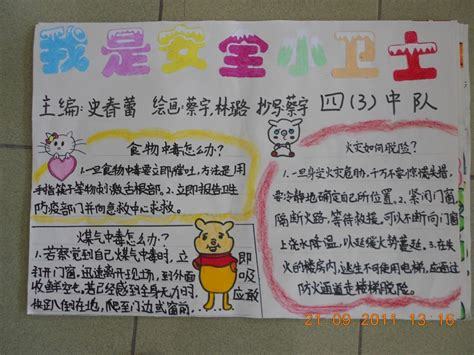 我是安全小卫士
主编:史春蕾 绘画:蔡宇,林璐 抄写:蔡宇 四(3)中队
食物中毒怎么办?
1.一旦食物中毒要立即催吐,方法是用
手指筷子等物刺激舌根部.2.立即报告卫生
防疫部门并向急救中心求救.
煤气中毒怎么办?
1.若察觉到自己煤气中毒时,立即
打开门窗,迅速离开现场,到外面吸
收鲜空气,若已经感到全身无力时,应敢
快趴倒在地,爬至门边或窗前.
火灾如何脱险?
1.一旦身受火灾危胁,千万不要惊慌失措.
要冷静地确定自己所位置.2.紧闭门窗
隔断火路,等待救援,可以不断向门窗
上浇水降温,以延缓火势蔓延.3.在失
火的楼房内,逃生不可使用电梯,应通过
防火通道走楼梯脱险.
21 09 2011 13:16